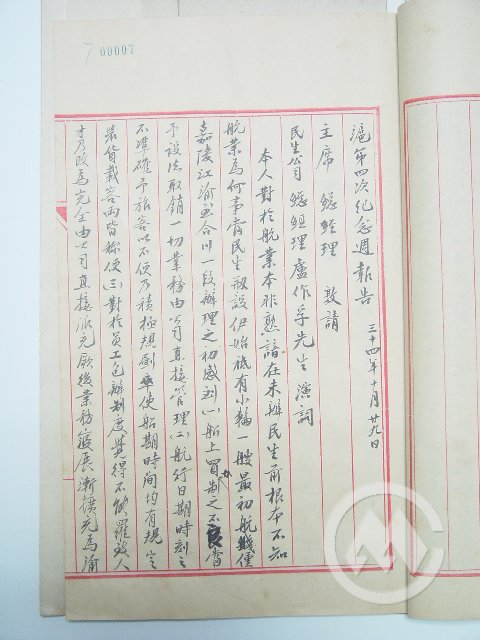 00007
滬第四次紀念週報告 三十四年十月廿九日
主席 總經理 敦請
民生公司總經理盧作孚先生演詞
本人對於航業本非熟諳在未辦民生前根本不知
航業為何事當民生創設伊始祗有小輪一艘最初航綫僅
嘉陵江渝至合川一段辦理之初感到(一)船上買办制之不良當
予設法取銷一切業務由公司直接管理(二)航行日期時刻之
不準確予旅客以不便乃積極規劃卒使船期時間均有規定
裝貨載客兩皆称便(三)對於員工包辦制度覺得不能羅致人
才乃改為完全由公司直接派充厥後業務發展漸擴充為渝